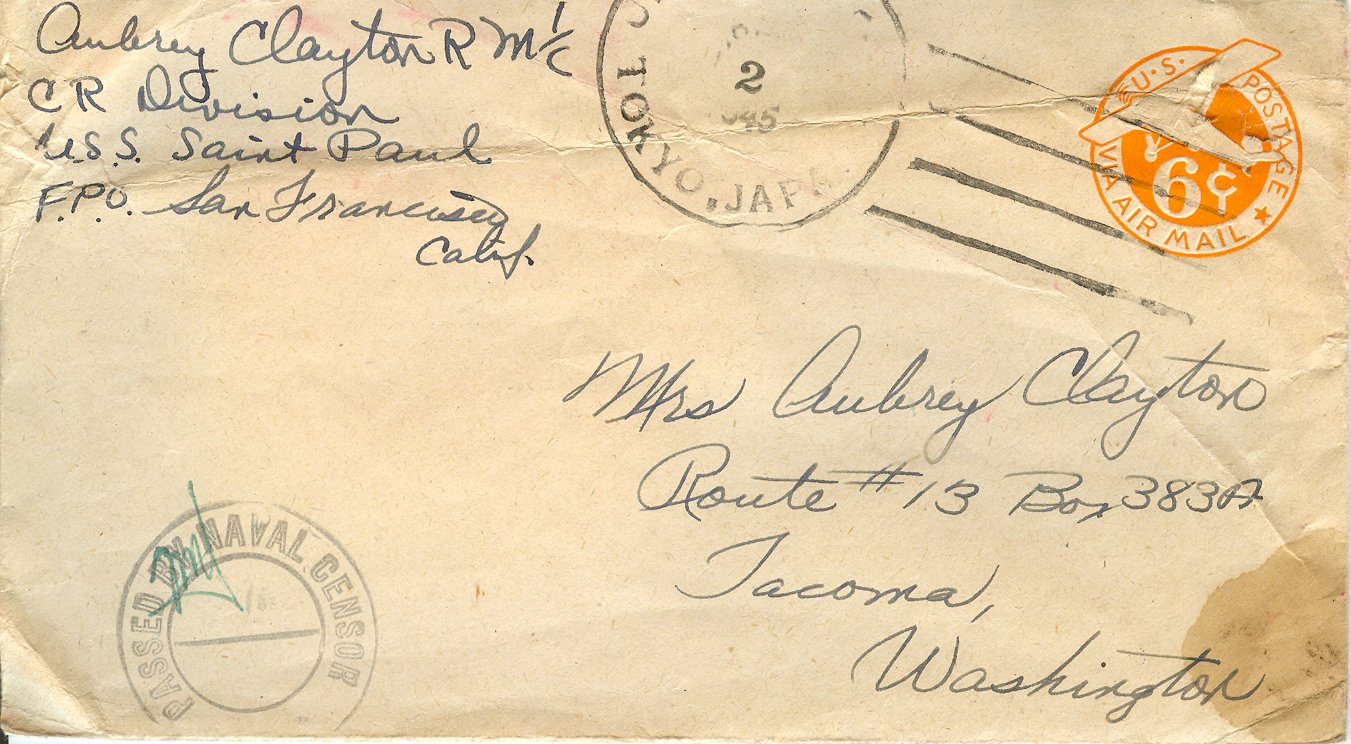 Aubrey Clayton R M 1/c
CR Division
U.S.S. Saint Paul
F.P.O. San Francisco
Calif.
2
945
TOKYO, JAPA
U.S. POSTAGE
6¢
VIA AIR MAIL
Mrs Aubrey Clayton
Route # 13 Box 383A
Tacoma,
Washington
PASSED BY NAVAL CENSOR